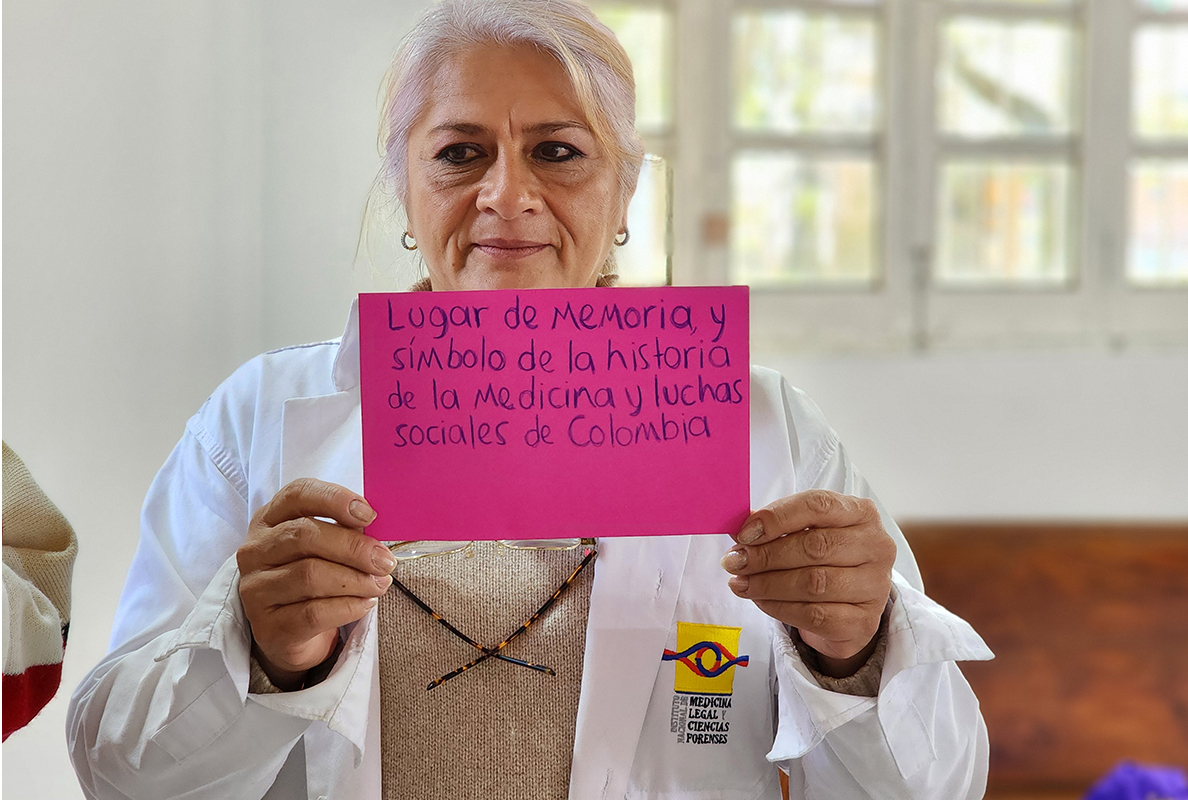 Lugar de Memoria, y
símbolo de la historia
de la Medicina y luchas
sociales de Colombia
INSTITUTO
NACIONAL DE
MEDICINA
LEGAL Y
CIENCIAS
FORENSES